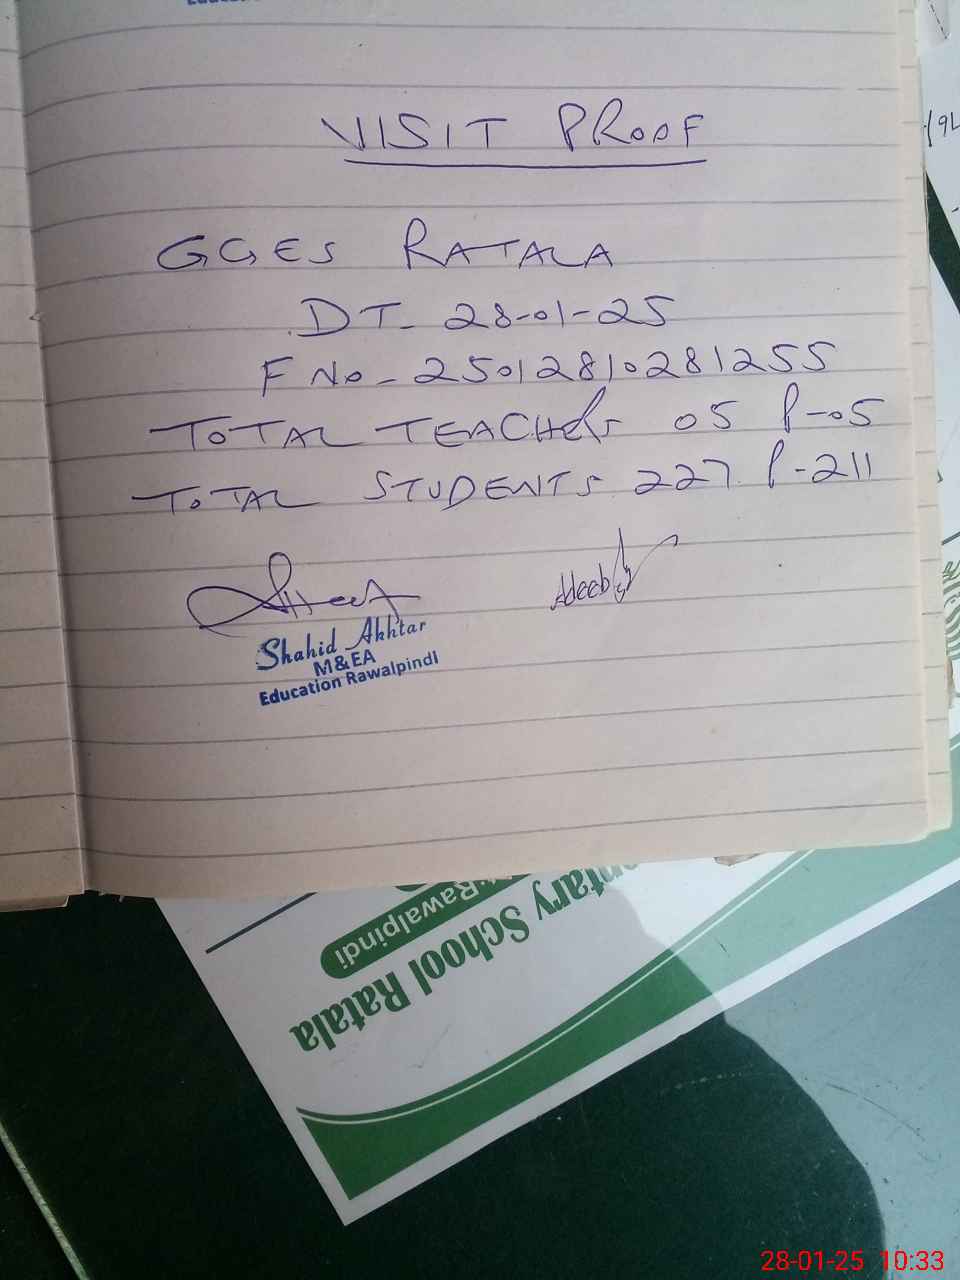 VISIT PROOF
GGES RATALA
DT- 28-01-25
F No- 25012810281255
TOTAL TEACHERS 05 P-05
TOTAL STUDENTS 227 P-211
Adeeb
Shahid Akhtar
M&EA
Education Rawalpindi
entary School Ratala
Rawalpindi
28-01-25 10:33